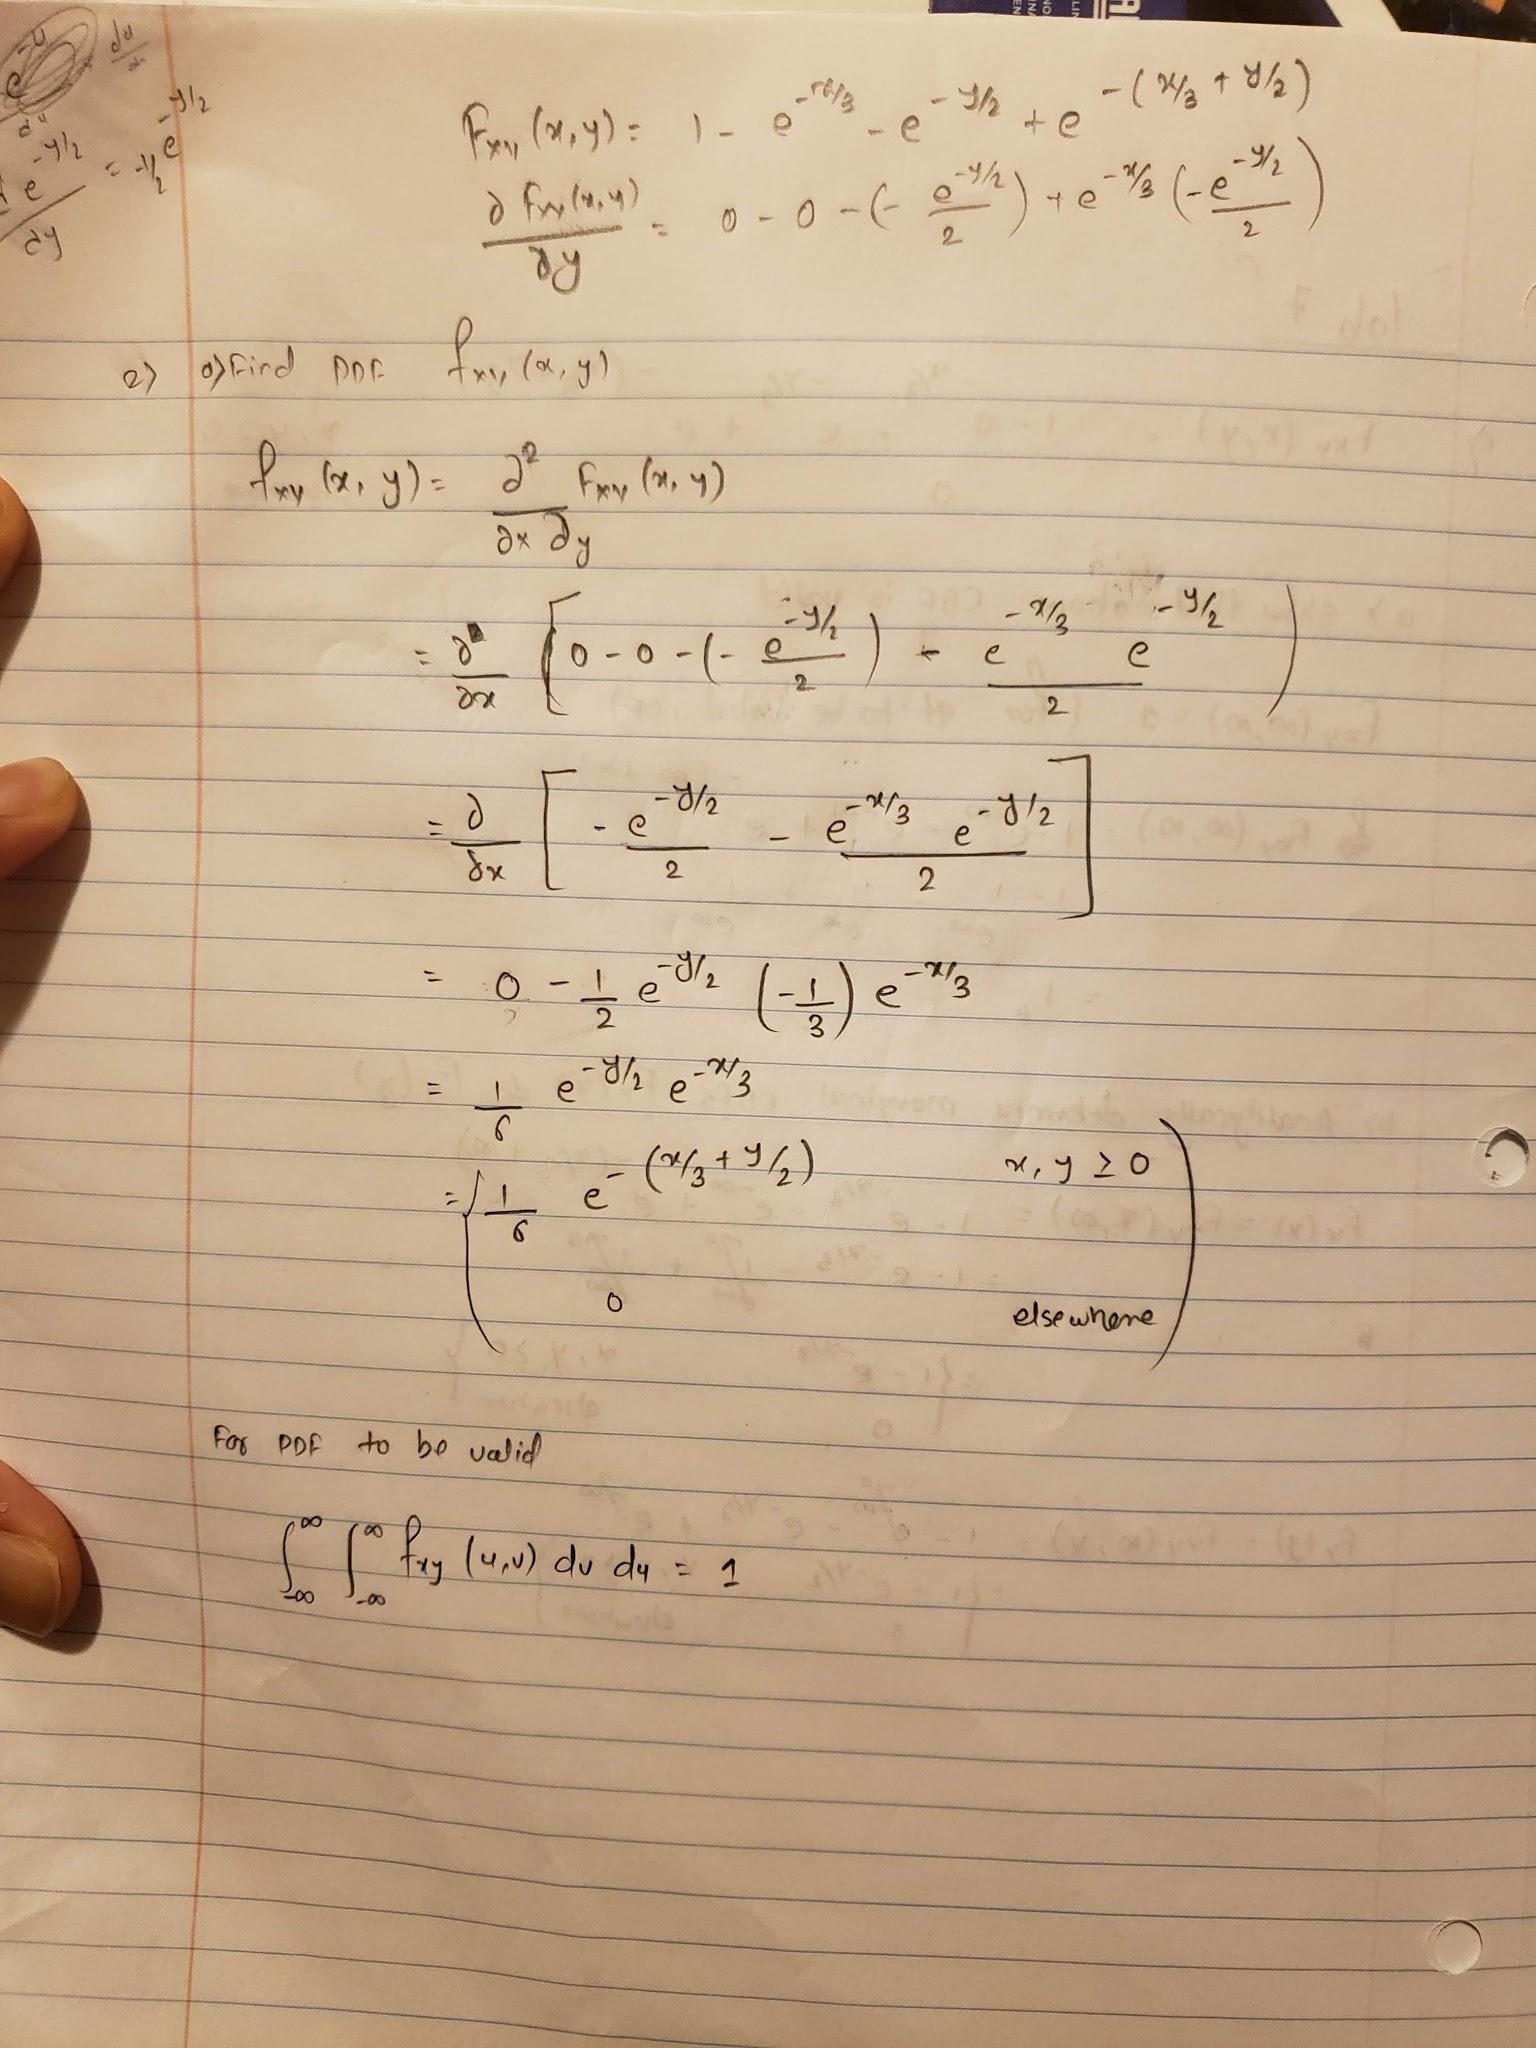 F_{XY}(x,y) = 1 - e^{-x/3} - e^{-y/2} + e^{-(x/3 + y/2)}
∂F_{XY}(x,y)/∂y = 0 - 0 - (- e^{-y/2}/2) + e^{-x/3} (- e^{-y/2}/2)
e^{-y/2}/dy = -1/2 e^{-y/2}
2) a) Find PDF f_{XY}(x, y)
f_{XY}(x, y) = ∂²/∂x∂y F_{XY}(x, y)
= ∂/∂x [0 - 0 - (- e^{-y/2}/2) - e^{-x/3} e^{-y/2}/2)
= ∂/∂x [- e^{-y/2}/2 - e^{-x/3} e^{-y/2}/2]
= 0 - 1/2 e^{-y/2} (-1/3) e^{-x/3}
= 1/6 e^{-y/2} e^{-x/3}
= ( 1/6 e^{-(x/3 + y/2)} x, y ≥ 0 )
0 elsewhere
For PDF to be valid
∫_{-∞}^{∞} ∫_{-∞}^{∞} f_{xy}(u,v) dv du = 1